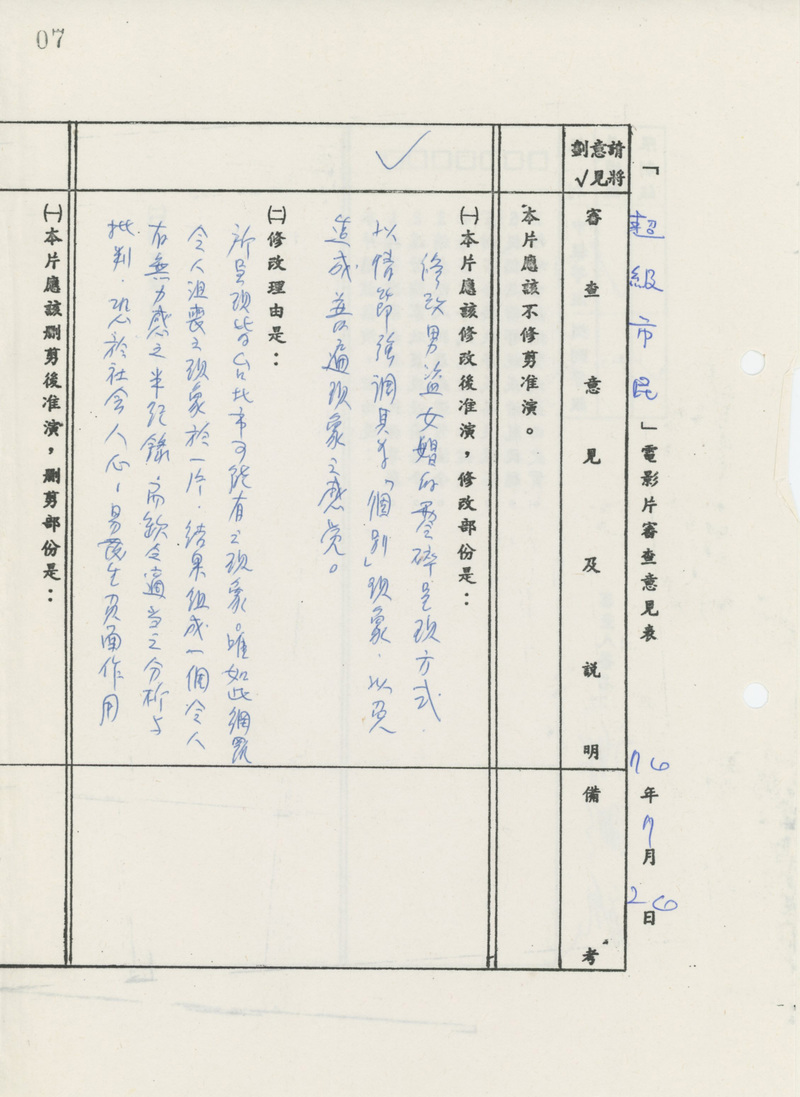 07
「超級市民」電影片審查意見表 76年7月26日
請將意見劃✓
審查意見及說明
備考
本片應該不修剪准演。
✓
㈠本片應該修改後准演，修改部份是：
修改男盜女娼的整碎呈現方式．
以情節強調其為「個別」現象．以免
造成普遍現象之感覺。
㈡修改理由是：
所呈現皆台北市可能有之現象。唯如此網羅
令人沮喪之現象於一片．結果組成一個令人
有無力感之半紀錄．而缺乏適當之分析與
批判．恐於社會人心，易產生負面作用
㈠本片應該刪剪後准演，刪剪部份是：